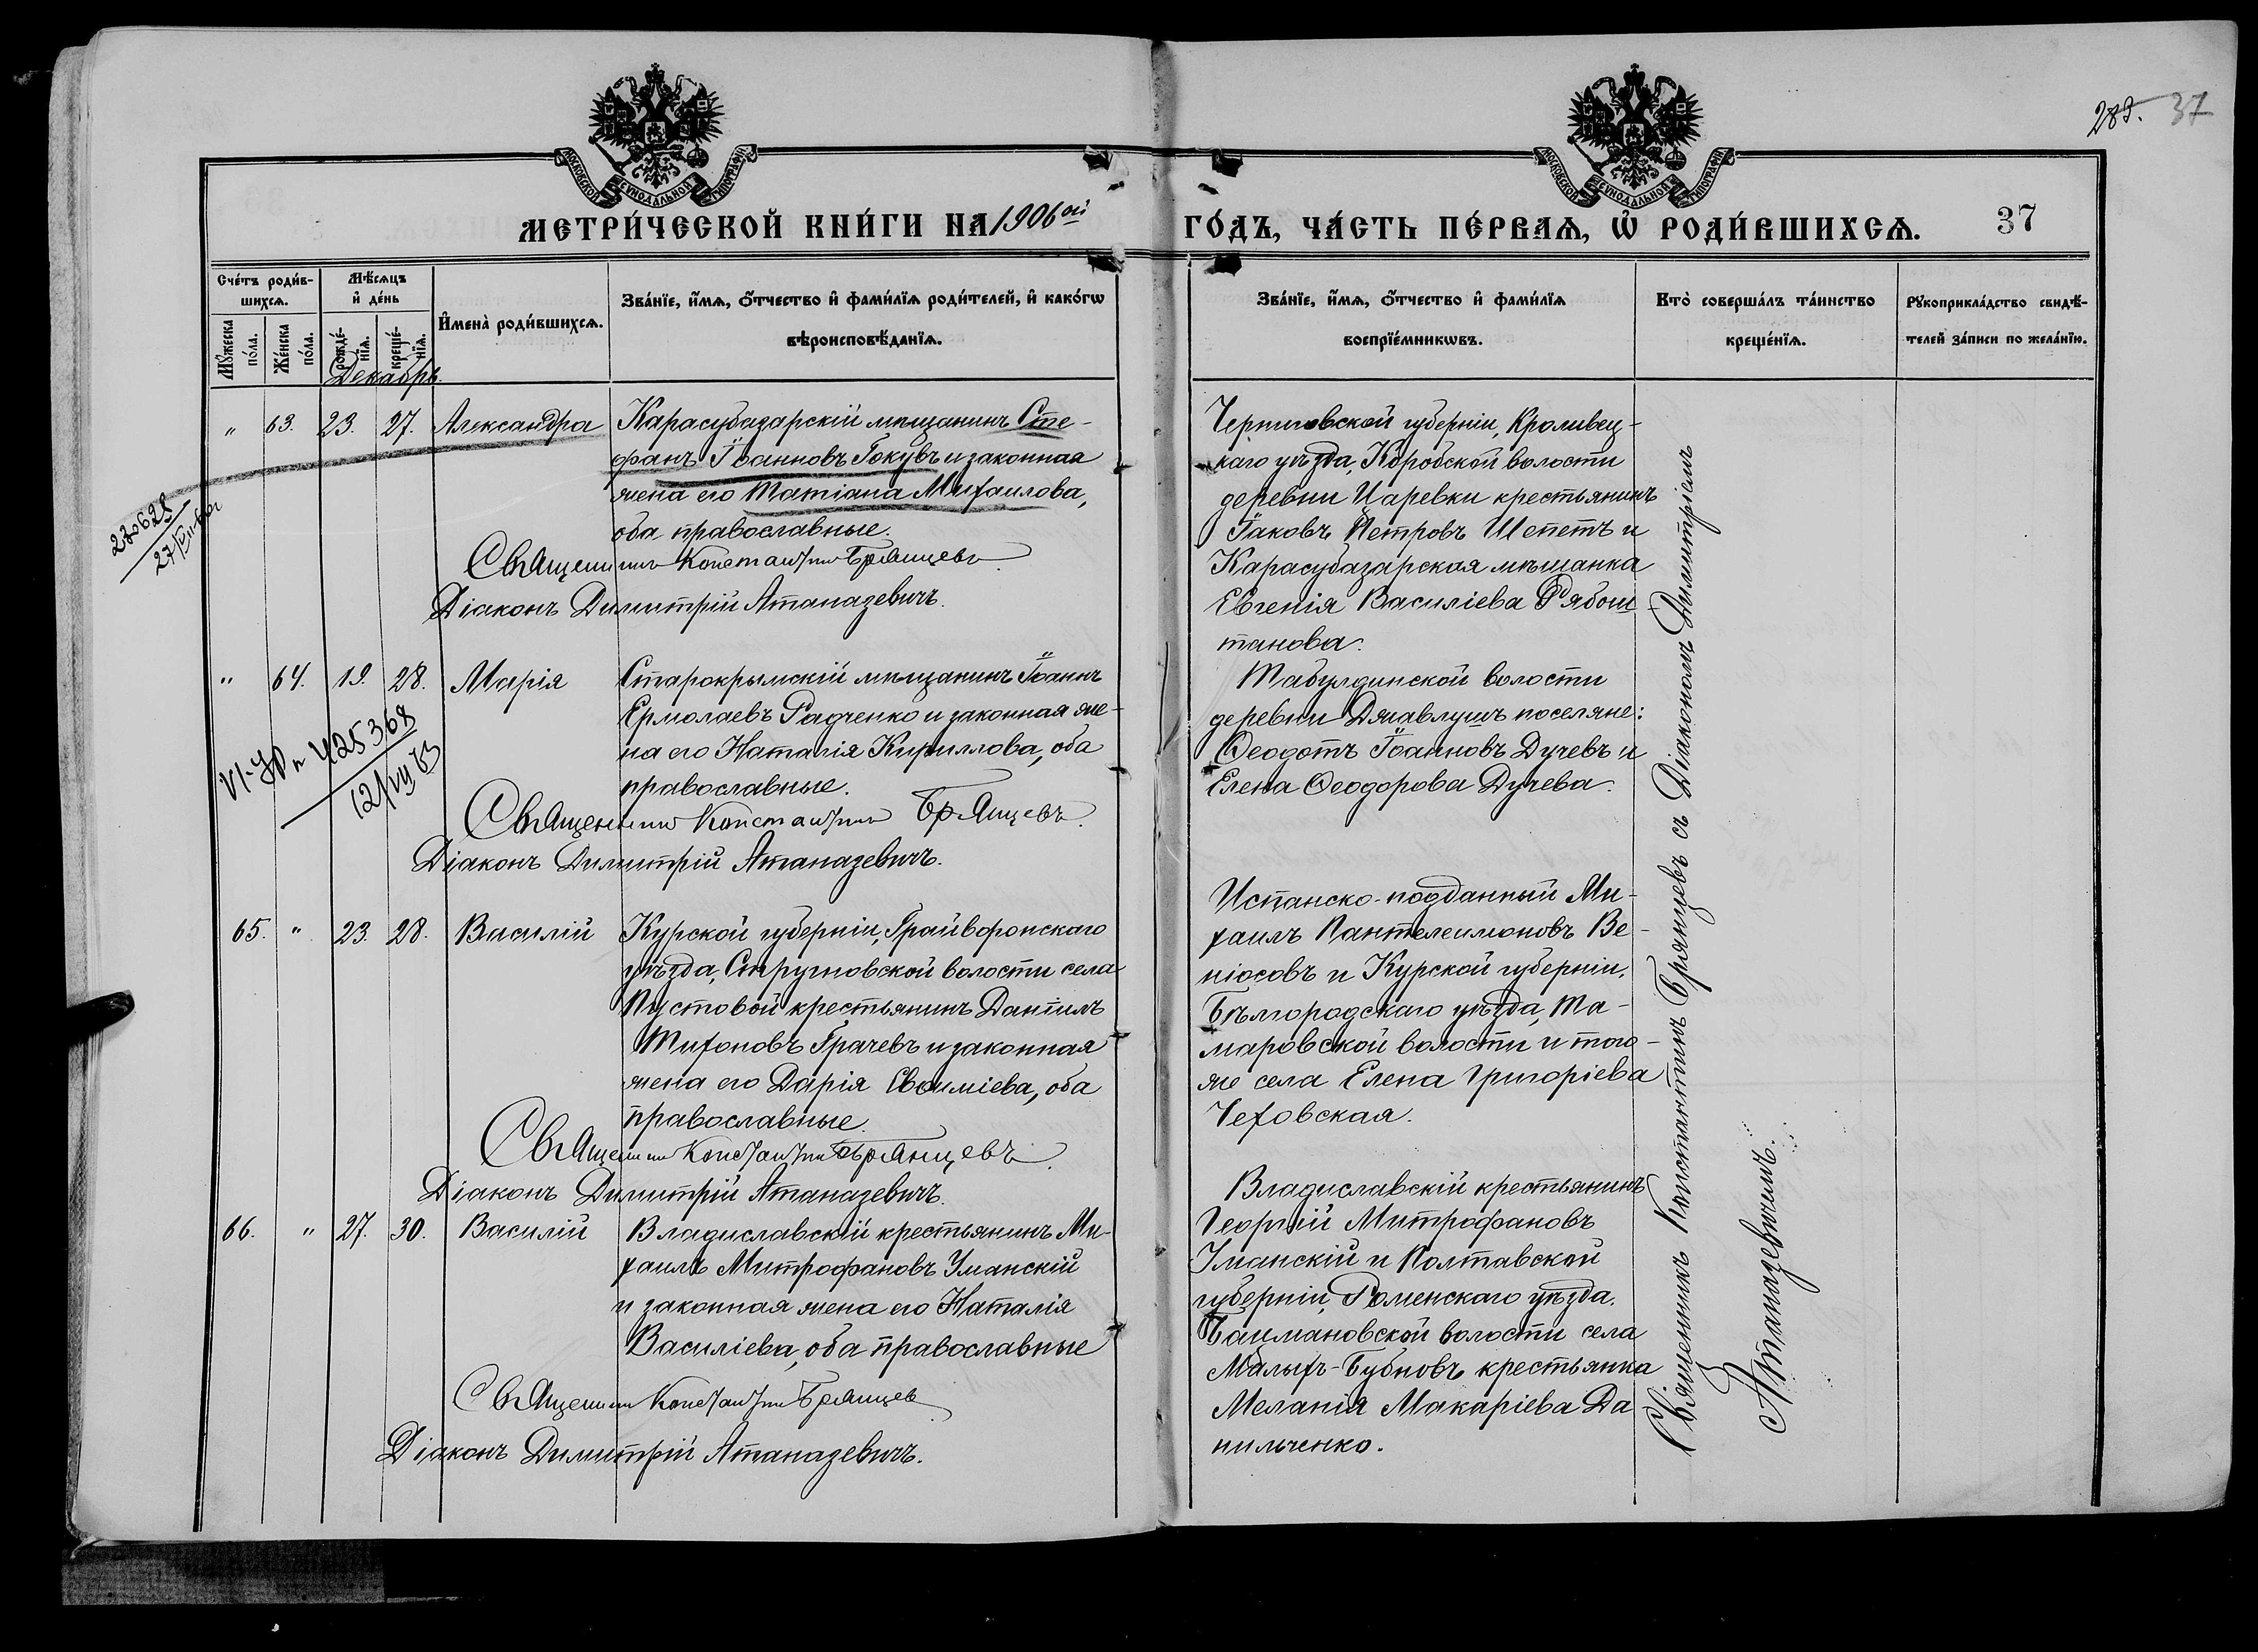 283. 37
МОСКОВСКОЙ СѴНОДАЛЬНОЙ ТИПОГРАФІИ
МОСКОВСКОЙ СѴНОДАЛЬНОЙ ТИПОГРАФІИ
МЕТРИ́ЧЕСКОЙ КНИ́ГИ НА 1906ой ГО́ДЪ, ЧА́СТЬ ПЕ́РВАѦ, Ѡ҆ РОДИ́ВШИХСѦ. 37
Сче́тъ роди́в-
шихсѧ.
Мꙋ́жеска по́ла.
Же́нска по́ла.
Мѣ́сѧцъ
и҆ де́нь
рожде́-
нїѧ.
креще́-
нїѧ.
И҆мена̀ роди́вшихсѧ.
Зва́нїе, и҆́мѧ, ѻ҆́тчество и҆ фами́лїѧ роди́телей, и҆ како́гѡ
вѣроисповѣ́данїѧ.
Зва́нїе, и҆́мѧ, ѻ҆́тчество и҆ фами́лїѧ
воспрїе́мникѡвъ.
Кто̀ соверша́лъ та́инство
креще́нїѧ.
Рꙋкоприкла́дство свидѣ́-
телей за́писи по жела́нїю.
Декабрь.
" 63. 23. 27. Александра
Карасубазарскій мѣщанинъ Сте-
фанъ Іоанновъ Гокувъ и законная
жена его Татіана Михаилова,
оба православные.
Священникъ Константинъ Брянцевъ
Діаконъ Димитрій Атаназевичъ.
Черниговской губерніи, Кролевец-
каго уѣзда, Коробской волости
деревни Царевки крестьянинъ
Іаковъ Петровъ Шепетъ и
Карасубазарская мѣщанка
Евгенія Василіева Рябош
танова.
270628
" 64. 19. 28. Марія
Старокрымскій мѣщанинъ Іоаннъ
Ермолаевъ Радченко и законная же-
на его Наталія Кириллова, оба
православные.
Священникъ Константинъ Брянцевъ.
Діаконъ Димитрій Атаназевичъ.
Табулдинской волости
деревни Джавлушъ поселяне:
Ѳеодотъ Іоанновъ Дучевъ и
Елена Ѳеодорова Дучева.
425368
65. " 23. 28. Василій
Курской губерніи, Грайворонскаго
уѣзда, Стругновской волости села
Пустовой крестьянинъ Даніилъ
Тихоновъ Грачевъ и законная
жена его Дарія Евѳиміева, оба
православные.
Священникъ Константинъ Брянцевъ.
Діаконъ Димитрій Атаназевичъ.
Испанско-подданный Ми-
хаилъ Пантелеимоновъ Ве-
ніосовъ и Курской губерніи,
Бѣлгородскаго уѣзда, То-
маровской волости и того-
же села Елена Григоріева
Чеховская.
66. " 27. 30. Василій
Владиславскій крестьянинъ Ми-
хаилъ Митрофановъ Уманскій
и законная жена его Наталія
Василіева, оба православные
Священникъ Константинъ Брянцев
Діаконъ Димитрій Атаназевичъ.
Владиславскій крестьянинъ
Георгій Митрофановъ
Уманскій и Полтавской
губерніи, Роменскаго уѣзда.
Бацмановской волости села
Малыхъ-Бубновъ крестьянка
Меланія Макаріева Да
нильченко.
Священникъ Константинъ Брянцевъ съ Діакономъ Димитріемъ
Атаназевичемъ.